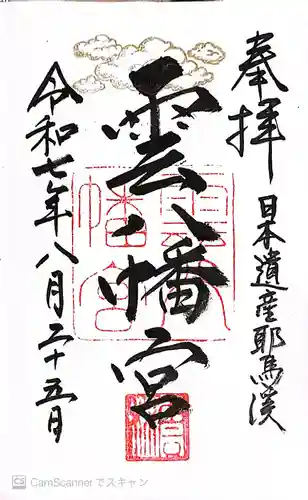 奉拝
日本遺産耶馬溪
雲八幡宮
令和七年八月二十五日
CS CamScanner でスキャン